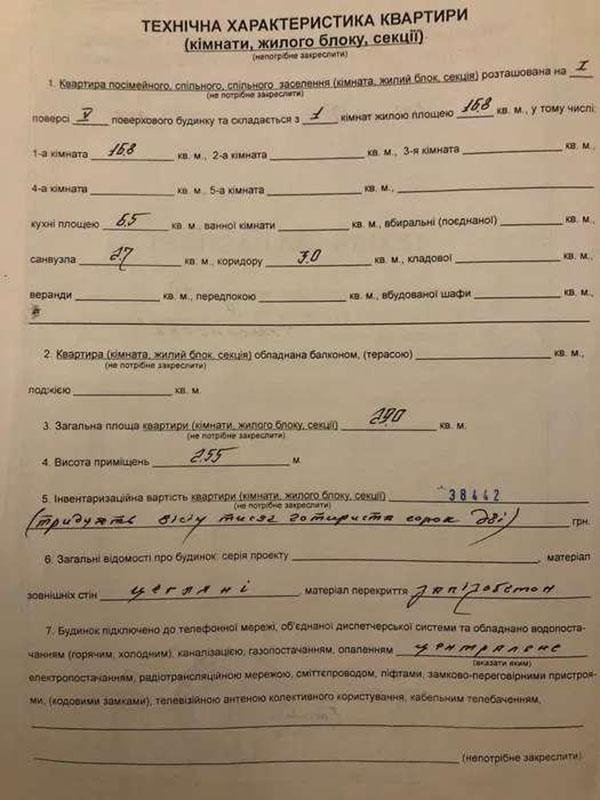 ТЕХНІЧНА ХАРАКТЕРИСТИКА КВАРТИРИ
(кімнати, жилого блоку, секції)
(непотрібне закреслити)
1. Квартира посімейного, спільного, спільного заселення (кімната, жилий блок, секція) розташована на I
(не потрібне закреслити)
поверсі V поверхового будинку та складається з 1 кімнат жилою площею 16.8 кв. м., у тому числі:
1-а кімната 16.8 кв. м., 2-а кімната кв. м., 3-я кімната кв. м.,
4-а кімната кв. м., 5-а кімната кв. м.,
кухні площею 6.5 кв. м., ванної кімнати кв. м., вбиральні (поєднаної) кв. м.,
санвузла 2.7 кв. м., коридору 3.0 кв. м., кладової кв. м.,
веранди кв. м., передпокою кв. м., вбудованої шафи кв. м.,
2. Квартира (кімната, жилий блок, секція) обладнана балконом, (терасою) кв. м.,
(не потрібне закреслити)
лоджією кв. м.
3. Загальна площа квартири (кімнати, жилого блоку, секції) 29.0 кв. м.
(не потрібне закреслити)
4. Висота приміщень 2.55 м.
5. Інвентаризаційна вартість квартири (кімнати, жилого блоку, секції) 38442
(не потрібне закреслити)
(тридцять вісім тисяч чотириста сорок дві) грн.
6. Загальні відомості про будинок: серія проекту , матеріал
зовнішніх стін цегляні , матеріал перекриття залізобетон
7. Будинок підключено до телефонної мережі, об'єднаної диспетчерської системи та обладнано водопоста-
чанням (горячим, холодним), каналізацією, газопостачанням, опаленням центральне
(вказати яким)
електропостачанням, радіотрансляційною мережою, сміттєпроводом, ліфтами, замково-переговірними пристроя-
ми, (кодовими замками), телевізійною антеною колективного користування, кабельним телебаченням,
(непотрібне закреслити)